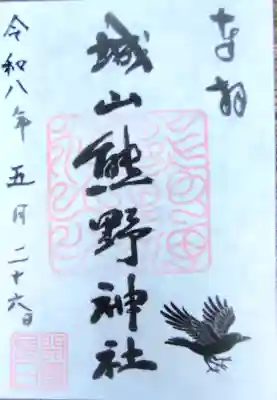 奉拝
城山熊野神社
令和八年五月二十六日